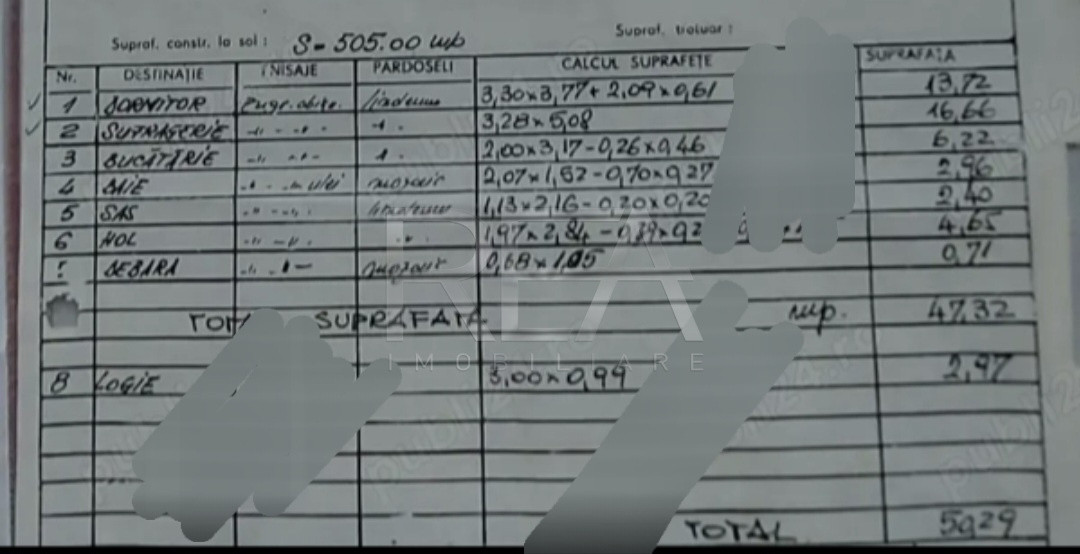 Supraf. constr. la sol : S= 505.00 mp Supraf. trotuar :
Nr. DESTINAȚIE FNISAJE PARDOSELI CALCUL SUPRAFEȚE SUPRAFAȚA
1 DORMITOR zugr. obișn. linoleum 3,30x3,77+2,09x0,61 13,72
2 SUFRAGERIE -"- -"- 3,28x5,08 16,66
3 BUCĂTĂRIE -"- -"- 2,00x3,17-0,26x0,46 6,22
4 BAIE -"- ulei mozaic 2,07x1,52-0,70x0,27 2,96
5 SAS -"- linoleum 1,13x2,16-0,20x0,20 2,40
6 HOL -"- -"- 1,97x2,84-0,39x0,2 4,65
7 DEBARA -"- mozaic 0,68x1,05 0,71
TOTA SUPRAFATA mp. 47,32
REA
IMOBILIARE
8 LOGIE 3,00x0,99 2,97
TOTAL 5029